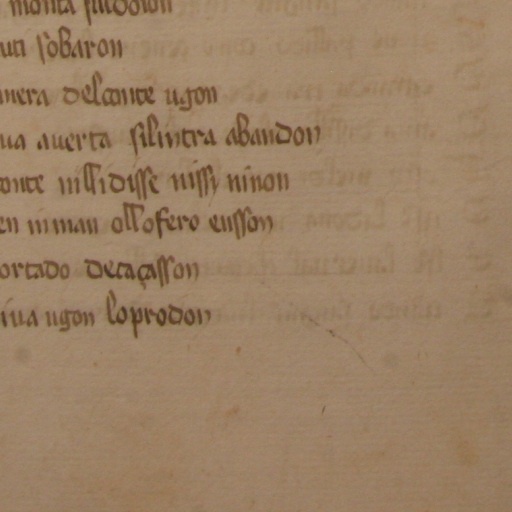 monta su dolon
uti sobaron
mera del conte ugon
ua auerta si lintra abandon
onte nillidisse nissy ninon
en in man ollofero ensson
ortado decaçasson
iua ugon lo prodon